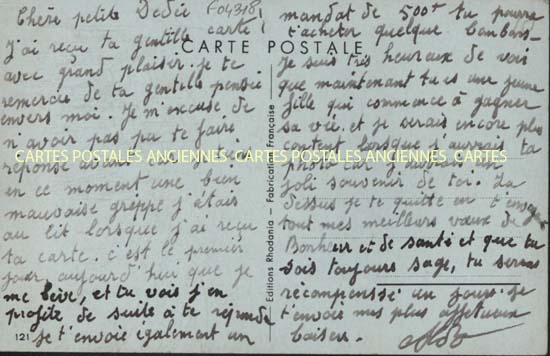 Chère petite Dédée (04318)
J'ai reçu ta gentille carte
avec grand plaisir. je te
remercie de ta gentille pensée
envers moi. Je m'excuse de
n'avoir pas pu te faire
réponse
en ce moment une bien
mauvaise grippe j'étais
au lit lorsque j'ai reçu
ta carte. c'est le premier
jour aujourd'hui que je
me lève, et tu vois j'en
profite de suite à te répondre
je t'envoie également un
121
CARTE POSTALE
CARTES POSTALES ANCIENNES CARTES POSTALES ANCIENNES CARTES
Editions Rhodania - Fabrication Française
mandat de 500f tu pourra
t'acheter quelque bonbons-
Je suis très heureux de voir
que maintenant tu es une jeune
fille qui commence à gagner
sa vie. et je serais encore plus
content lorsque j'aurais ta
photo car
joli souvenir de toi. La
dessus je te quitte en t'envoye
tout mes meilleurs vœux de
Bonheur et de santé et que tu
sois toujours sage, tu seras
récompensé un jour. Je
t'envoie mes plus affetueux
baisers.